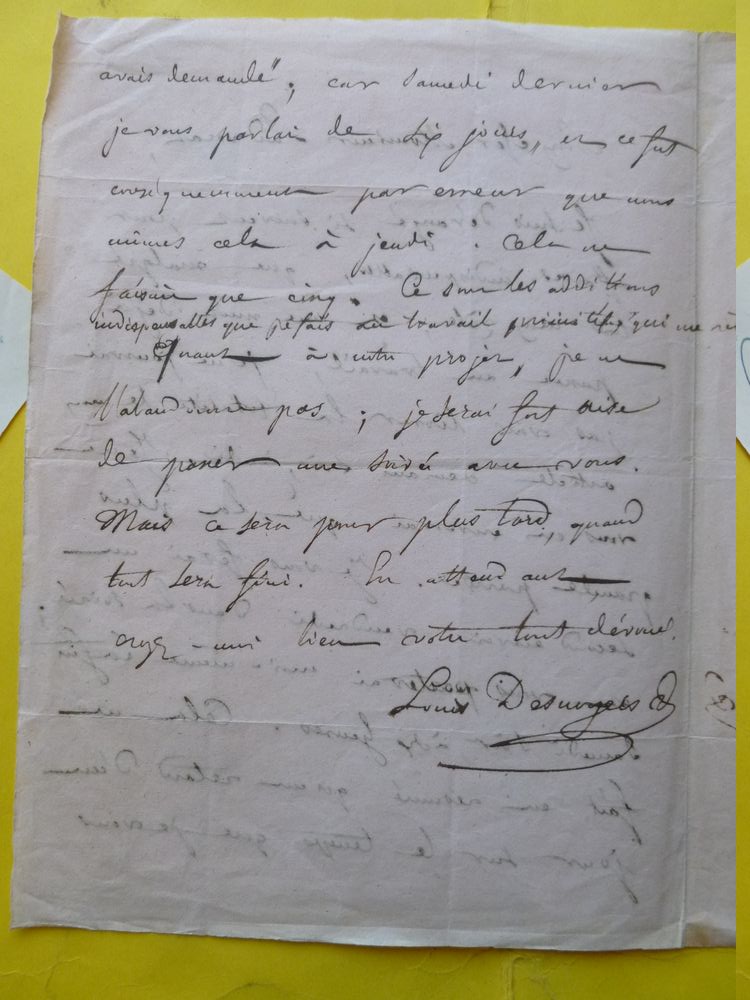 avais demandé", car samedi dernier
je vous parlai de six jours, et ce fut
conséquemment par erreur que nous
mîmes cela à jeudi. Cela ne
faisait que cinq. Ce sont les additions
indispensables que je fais au travail primitif qui me
Quant à votre projet, je ne
l'abandonne pas ; je serai fort aise
de passer une soirée avec vous.
Mais ce sera pour plus tard, quand
tout sera fini. En attendant
croyez-moi bien votre tout dévoué.
Louis Desnoyers